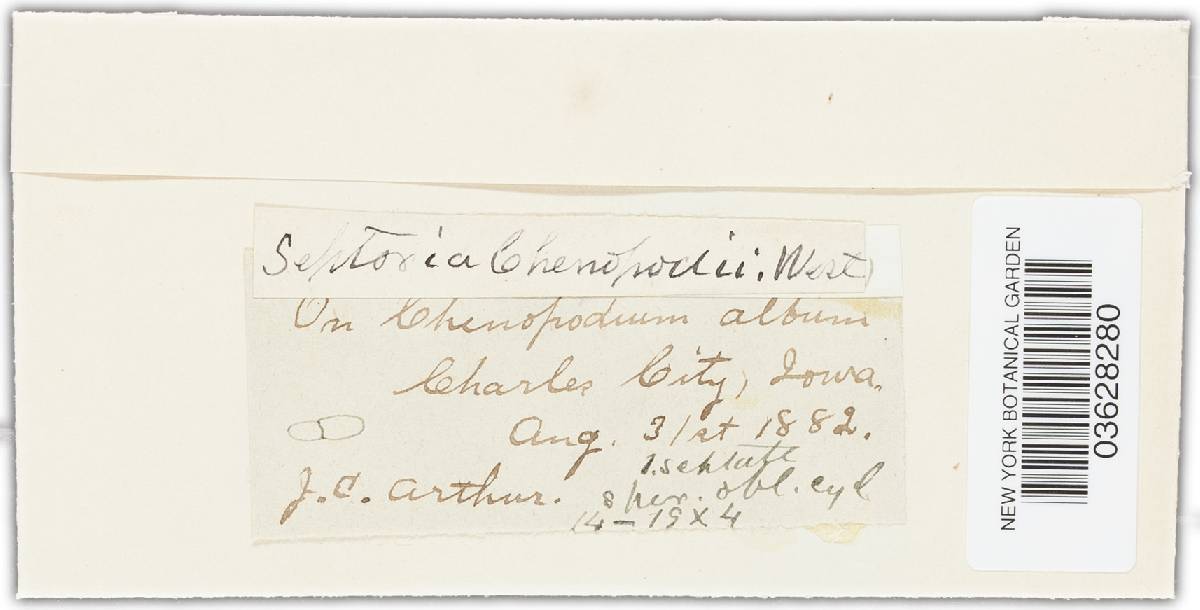 Septoria Chenopodii. West
On Chenopodium album
Charles City, Iowa.
Aug. 31st 1882.
J. C. Arthur.
1.septate
sper. obl. cyl
14-19 x 4
NEW YORK BOTANICAL GARDEN
03628280